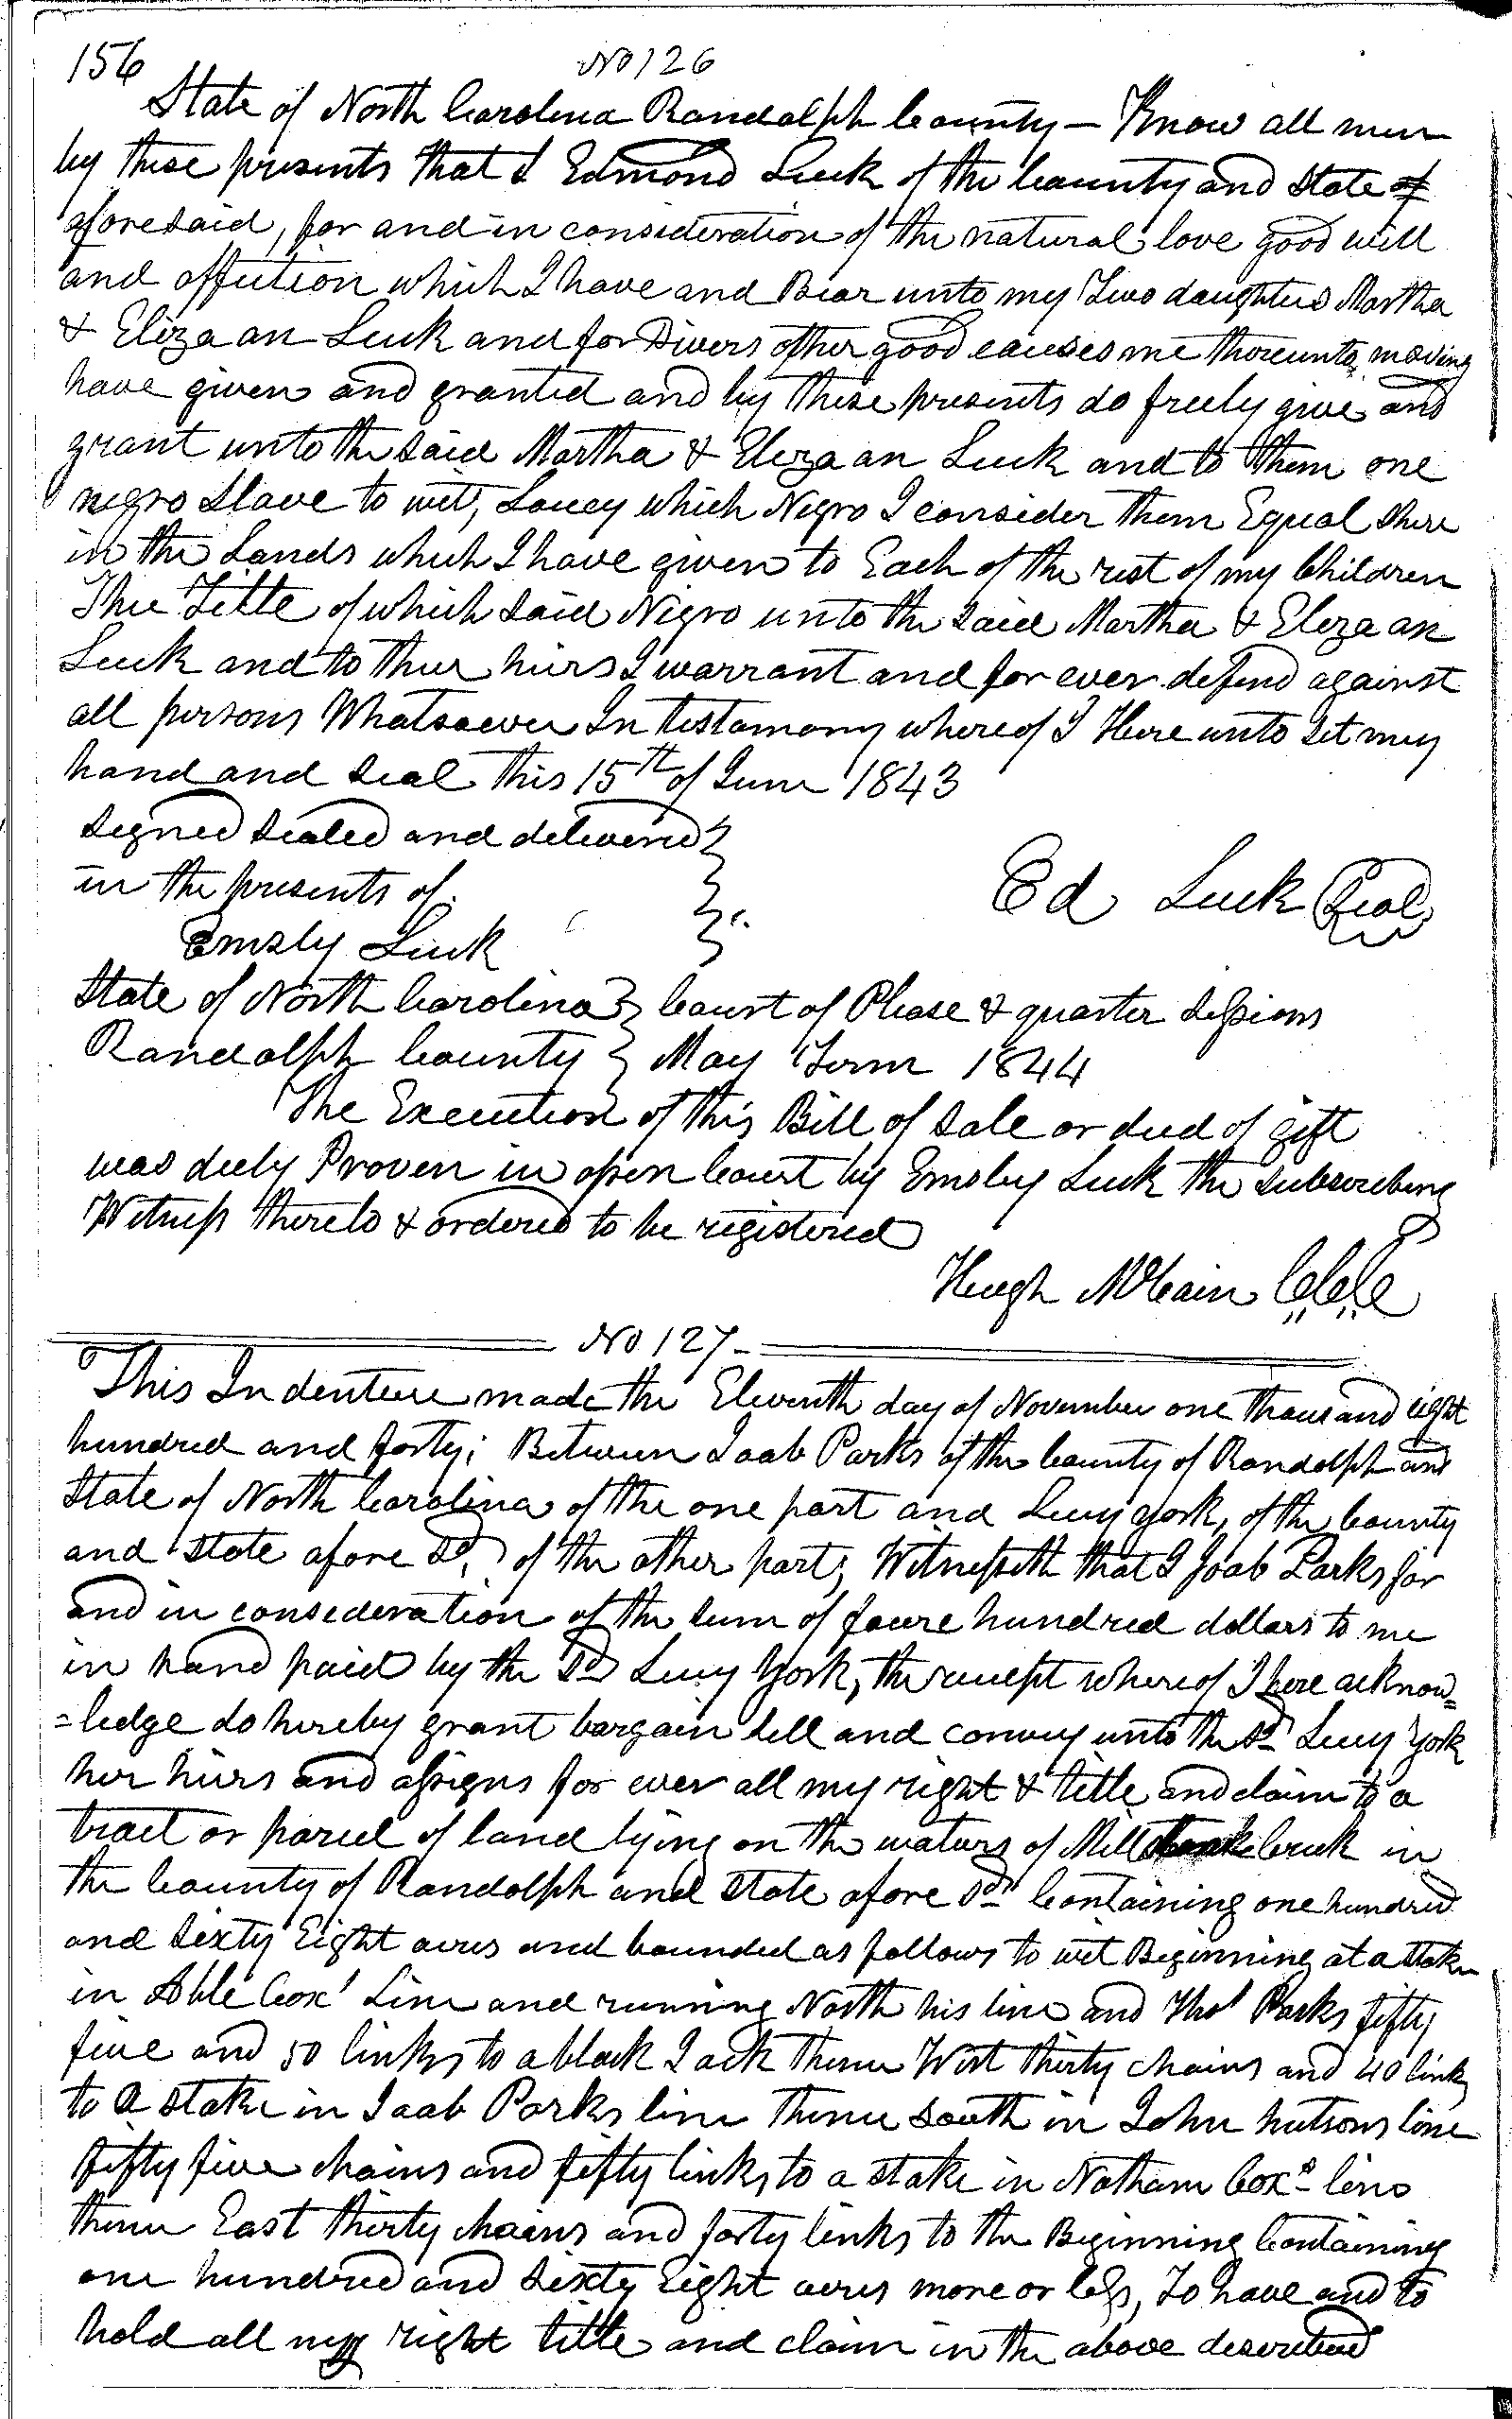 156 No 126
State of North Carolina Randolph County – Know all men
by these presents that I Edmond Luck of the County and State of
aforesaid, for and in consideration of the natural love good will
and affection which I have and Bear unto my Two daughters Martha
& Eliza an Luck and for Divers other good causes me thereunto moving
have given and granted and by these presents do freely give and
grant unto the said Martha & Eliza an Luck and to them one
negro Slave to wit, Loucy which Negro I consider them Equal shere
in the Lands which I have given to Each of the rest of my Children
The Title of which said Negro unto the said Martha & Eliza an
Luck and to their heirs I warrant and for ever defend against
all persons Whatsoever In testamony whereof I Here unto set my
hand and seal this 15th of June 1843
signed sealed and delivered
in the presents of
Emsly Luck
Ed Luck Seal
State of North Carolina } Court of Please & quarter sessions
Randolph County } May Term 1844
The Execution of this Bill of Sale or deed of gift
was duly Proven in open Court by Emsley Luck the subscribing
Witness thereto & ordered to be registered
Hugh McCain C.C.C
No 127 –
This Indenture made the Eleventh day of November one thousand eight
hundred and forty; Between Joab Parks of the County of Randolph and
State of North Carolina of the one part and Lucy York, of the County
and State afore sd, of the other part, Witnesseth that I Joab Parks for
and in consideration of the sum of foure hundred dollars to me
in hand paid by the sd Lucy York, the receipt whereof I here acknow=
=ledge do hereby grant bargain sell and convey unto the sd Lucy York
her heirs and assigns for ever all my right & title and claim to a
tract or parcel of land lying on the waters of Mill Creek in
the County of Randolph and State afore sd Containing one hundred
and Sixty Eight acres and bounded as follows to wit Beginning at a stake
in Able Cox' Line and running North his line and Thos Parks fifty
five and 50 links to a black Jack thence West thirty chains and 40 links
to a stake in Joab Parks line thence south in John hutsons line
fifty five chains and fifty links to a stake in Nathan Cox's line
thence East thirty chains and forty links to the Beginning Containing
one hundred and Sixty Eight acres more or less, To have and to
hold all my right title and claim in the above described